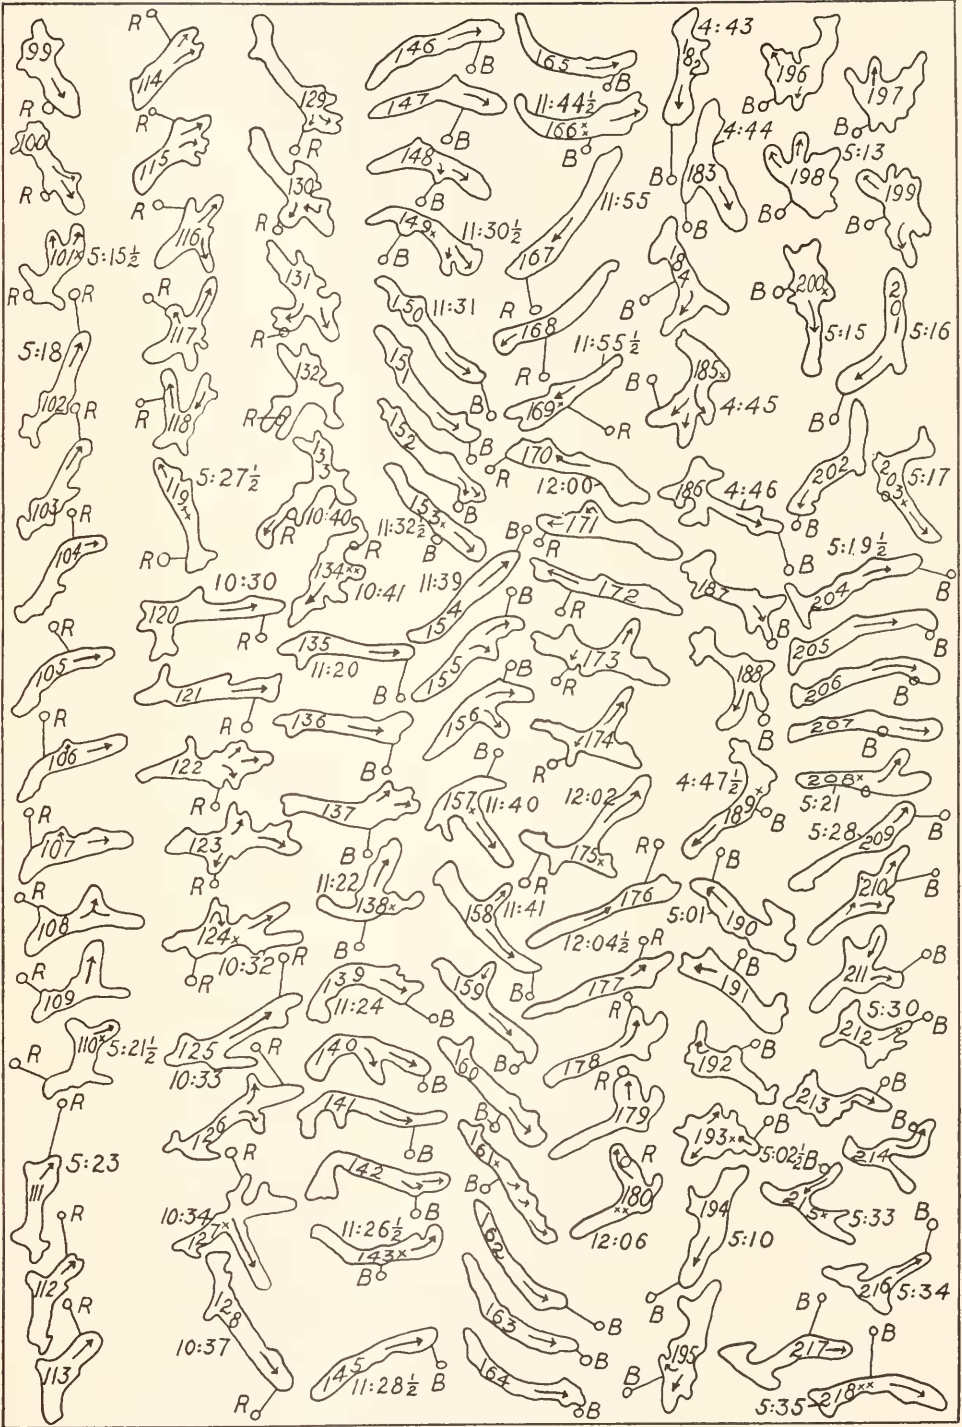 99
R
100
R
101x 5:15½
R
R
5:18
102
R
103
R
104
R
105
R
106
R
107
R
108
R
109
R
110x 5:21½
R
111 5:23
R
112
R
113
R
114
R
115
R
116
R
117
R
118
5:27½
119xx
R
10:30
120
R
121
R
122
R
123
R
124x
R
10:32
R
125
10:33
R
126
R
10:34
127x
128
10:37
R
129
R
130
R
131
R
132
R
133
R
10:40
R
134xx
10:41
135
11:20
B
136
B
137
B
11:22
138x
B
139
11:24
B
140
B
141
B
142
B
11:26½
143x
B
145
11:28½
B
146
B
147
B
148
B
149x
11:30½
B
150
11:31
B
151
B
152
B
153x
11:32½
B
B
11:39
154
B
155
B
156
B
157x
11:40
158
11:41
B
159
B
160
B
161x
B
162
B
163
B
164
B
165
B
11:44½
166xx
B
167
11:55
R
168
R
11:55½
169x
R
170
R
12:00
171
R
172
R
173
R
174
R
12:02
175x
R
R
176
12:04½
R
177
R
178
R
179
R
180xx
12:06
4:43
182
B
4:44
183
B
184
B
185x
B
4:45
186
4:46
B
187
B
188
B
4:47½
189x
B
B
5:01
190
B
191
192
B
193xx
B
5:02½
194
5:10
B
195
B
196
B
197
B
5:13
198
B
199
B
200x
B
5:15
201
5:16
B
202
B
203x
5:17
5:19½
204
B
205
B
206
B
207
B
208x
5:21
5:28
209
B
210
B
211
B
5:30
212
B
213
B
B
214
B
215x
5:33
B
216
5:34
B
217
B
5:35
218xx